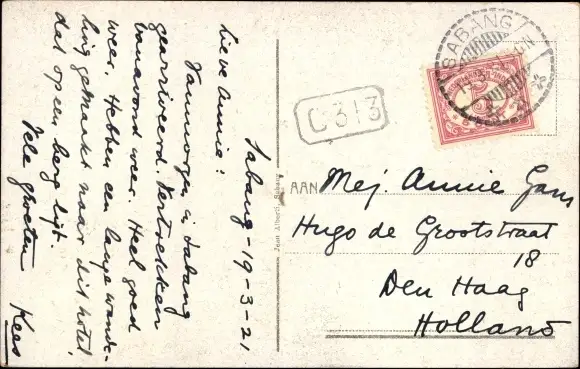 Sabang - 19-3-21
Lieve Annie!
Vanmorgen in Sabang
gearriveerd. Vertrekken
vanavond weer. Heel goed
weer. Hebben een lange wande-
ling gemaakt naar dit hotel,
dat op een berg ligt.
Vele groeten
Kees
Jean Alberti, Sabang
C 313
SABANG
AAN Mej. Annie Gans
Hugo de Grootstraat
18
Den Haag
Holland